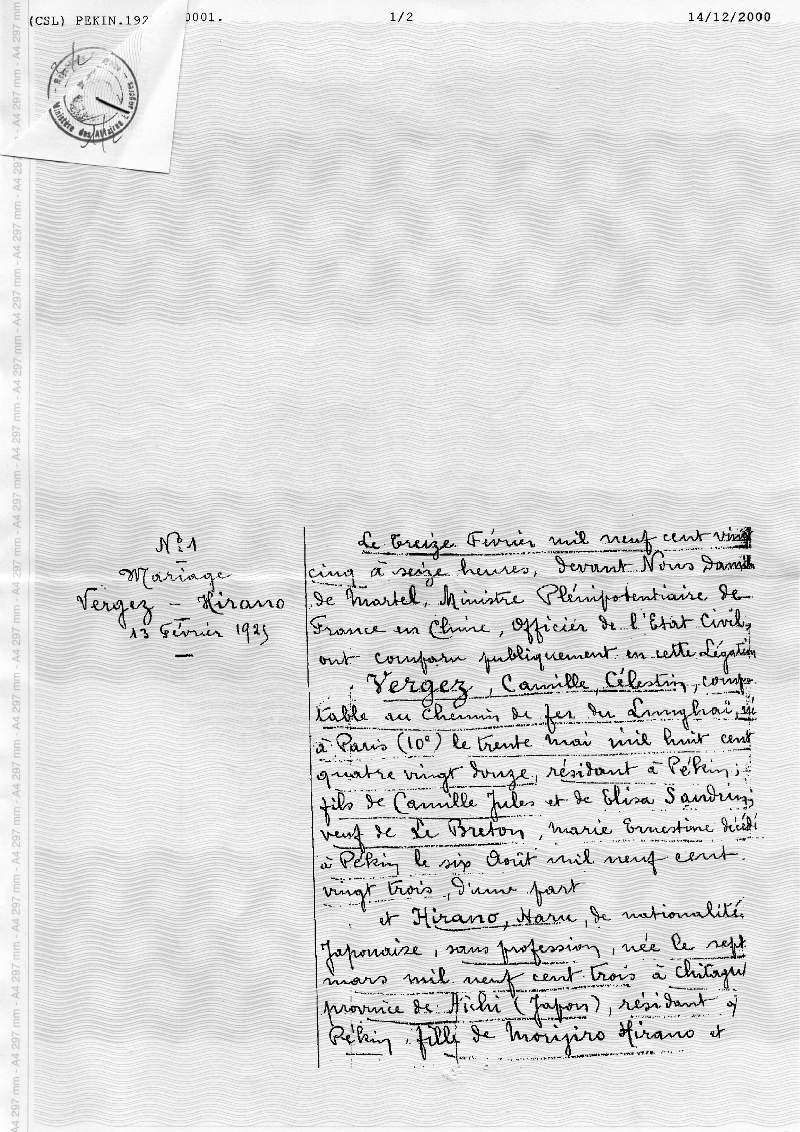 (CSL) PEKIN.192 0001. 1/2 14/12/2000
Ministère des Affaires
A4 297 mm - A4 297 mm - A4 297 mm - A4 297 mm - A4 297 mm - A4 297 mm - A4 297 mm - A4 297 mm - A4 297 mm - A4 297 mm
Nº 1
Mariage
Vergez - Hirano
13 Février 1925
Le treize Février mil neuf cent vingt
cinq à seize heures, devant Nous Damien
de Martel, Ministre Plénipotentiaire de
France en Chine, Officier de l'Etat Civil,
ont comparu publiquement en cette Légation
Vergez, Camille, Célestin, comp-
table au Chemin de fer du Lunghaï, né
à Paris (10e) le trente mai mil huit cent
quatre vingt douze, résidant à Pékin;
fils de Camille Jules et de Elisa Sandrin;
veuf de Le Breton, Marie Ernestine décédée
à Pékin le six Août mil neuf cent
vingt trois, d'une part
et Hirano, Haru, de nationalité
Japonaise, sans profession, née le sept
mars mil neuf cent trois à Chitagu
province de Aichi (Japon), résidant à
Pékin, fille de Morijiro Hirano et